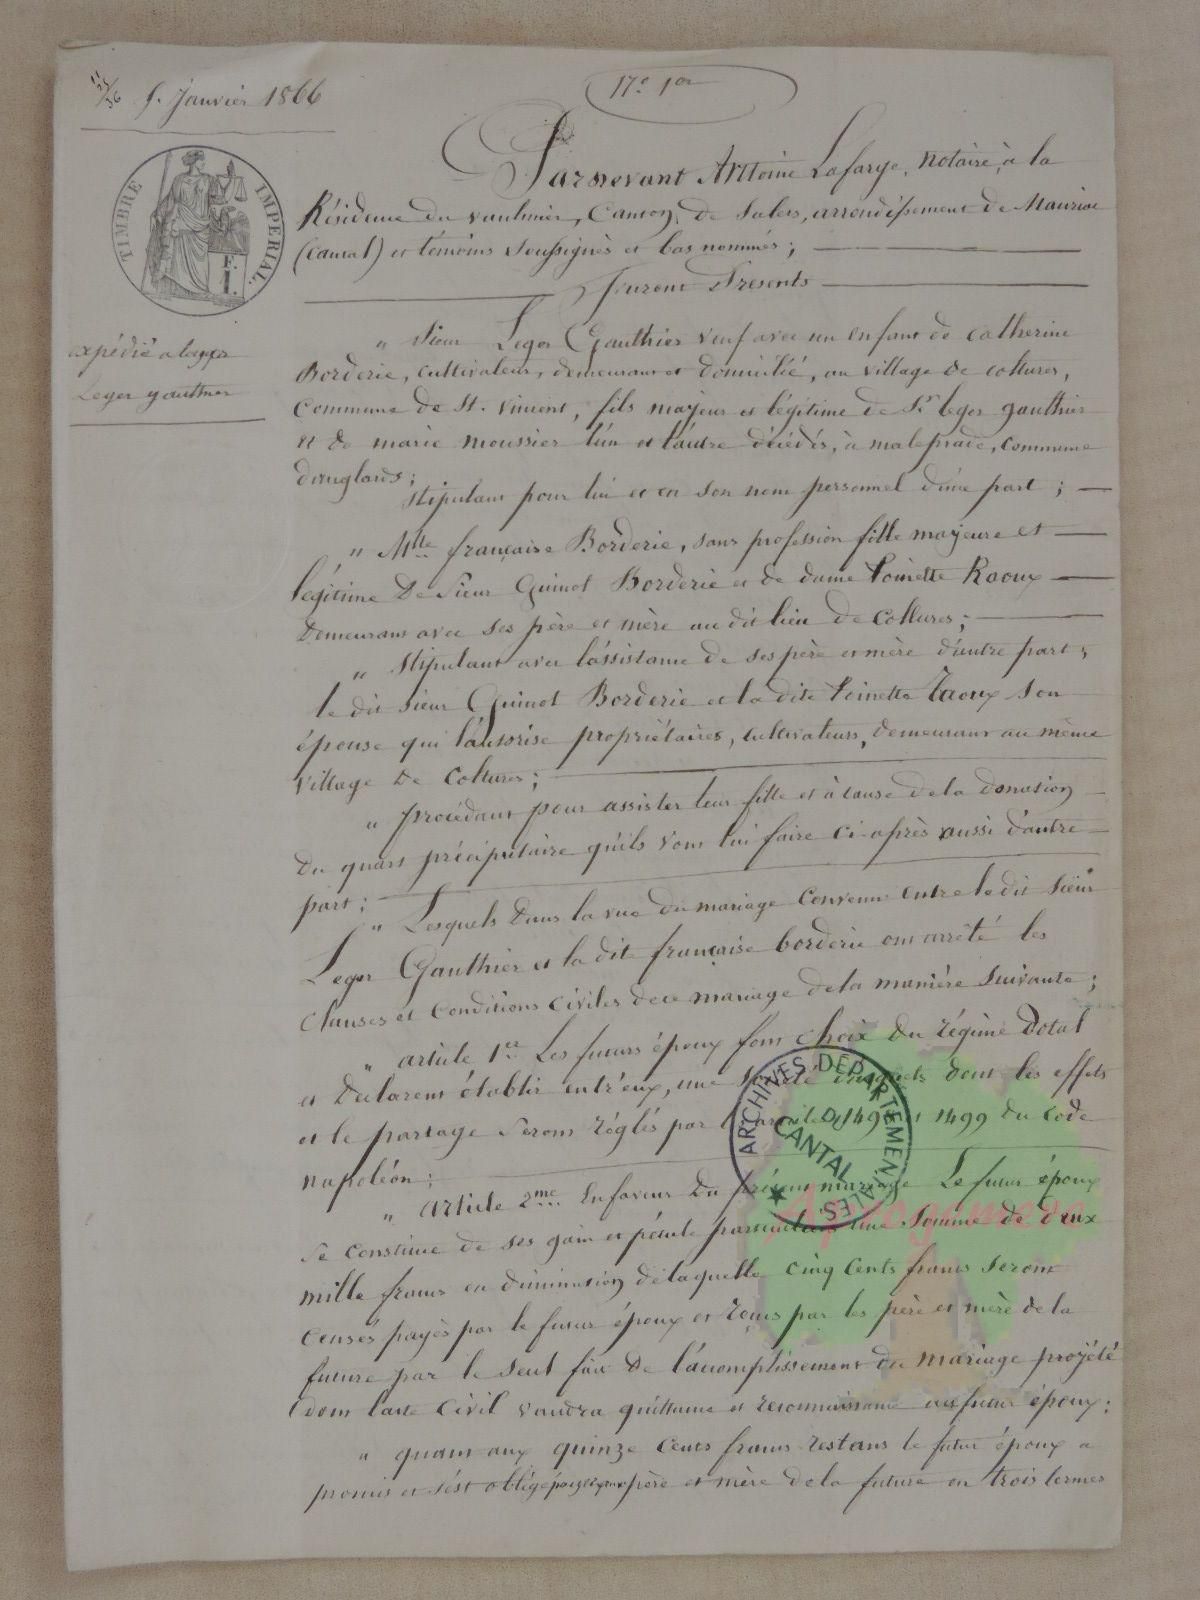 Janvier 1866
17e 1er
TIMBRE IMPERIAL.
F. I.
expédié a
Leger gauthier
Pardevant Antoine Lafarge, notaire, à la
Résidence du vaulmier, Canton, de Salers, arrondissement de Mauriac
(Cantal) et témoins soussignés et bas nommés ;
Furent Présents
" Sieur Leger Gauthier veuf avec un enfant de catherine
Borderie, cultivateur, demeurant et domicilié, au village de coltures,
Commune de St. vincent, fils majeur et légitime de Sr. leger gauthier
et de marie moussier l'un et l'autre décédés, à maleprade, commune
d'anglards ;
stipulant pour lui et en son nom personnel d'une part ;
" Mlle française Borderie, sans profession fille majeure et
légitime De Sieur Guinot Borderie et de dame Toinette Raoux
Demeurant avec ses père et mère au dit lieu de coltures ;
" Stipulant avec l'assistance de ses père et mère d'autre part ;
le dit sieur Guinot Borderie et la dite Toinette Raoux son
épouse qui l'autorise propriétaires, cultivateurs, demeurant au même
village de Coltures ;
" procédant pour assister leur fille et à cause de la donation
du quart préciputaire qu'ils vont lui faire ci-après aussi d'autre
part ;
" Lesquels dans la vue du mariage convenu entre le dit sieur
Leger Gauthier et la dite française borderie ont arrêté les
clauses et conditions civiles de ce mariage de la manière suivante ;
" article 1er Les futurs époux font choix du régime dotal
et déclarent établir entr'eux, une société d'acquets dont les effets
et le partage seront réglés par les articles 1498 et 1499 du Code
napoléon ;
" article 2me En faveur du présent mariage Le futur époux
se constitue de ses gain et pécule particuliers une somme de deux
mille francs en diminution de laquelle cinq cents francs seront
censés payés par le futur époux et reçus par les père et mère de la
future par le seul fait de l'accomplissement du mariage projété
dont l'acte civil vaudra quittance et reconnaissance au futur époux ;
" quant aux quinze cents francs restans le futur époux a
promis et s'est obligé père et mère de la future en trois termes
ARCHIVES DÉPARTEMENTALES
CANTAL
Aprogemere